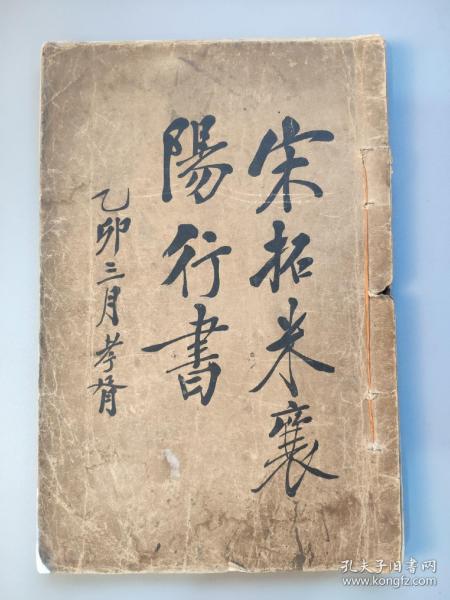 宋拓米襄
陽行書
乙卯三月孝胥
孔夫子旧书网
www.kongfz.com